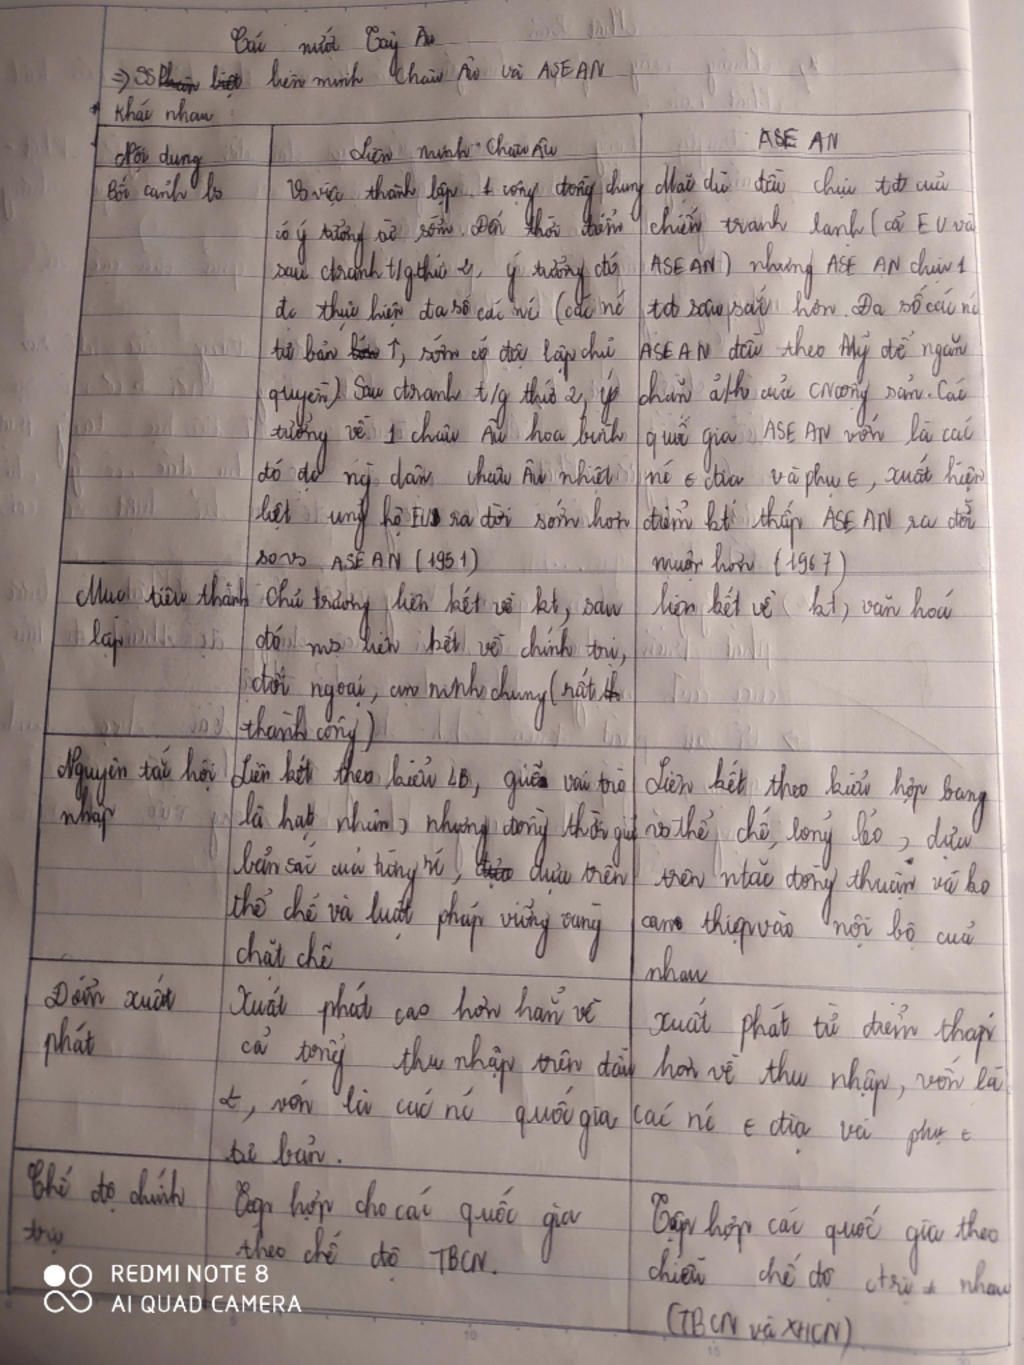 Các nước Tây Âu
=> SS liên minh châu Âu và ASEAN
* Khác nhau
Nội dung
Liên minh Châu Âu
ASEAN
Bối cảnh ls
Về việc thành lập 1 cộng đồng chung
có ý tưởng từ sớm. Đến thời điểm
sau ctranh t/g thứ 2, ý tưởng đó
đc thực hiện đa số các nc (các nc
tư bản ↑, sớm có độc lập chủ
quyền) Sau ctranh t/g thứ 2, ý
tưởng về 1 châu Âu hoa bình
đó đc ng dân châu Âu nhiệt
liệt ủng hộ EU ra đời sớm hơn
so vs ASEAN (1951)
Mặc dù đều chịu tđ của
chiến tranh lạnh (cả EU và
ASEAN) nhưng ASEAN chịu 1
tđ sâu sắc hơn. Đa số các nc
ASEAN đều theo Mỹ để ngăn
chặn a/h của CNcộng sản. Các
quốc gia ASEAN vốn là các
nc ϵ địa và phụ ϵ, xuất hiện
điểm kt thấp ASEAN ra đời
muộn hơn (1967)
Mục tiêu thành
lập
Chủ trương liên kết về kt, sau
đó ms liên kết về chính trị,
đối ngoại, an ninh chung (rất
thành công)
liên kết về kt, văn hoá
Nguyên tắc hội
nhập
Liên kết theo kiểu LB, vai trò
là hạt nhân, nhưng đồng thời giữ
bản sắc của từng nc, dựa trên
thể chế và luật pháp vững vàng
chặt chẽ
Liên kết theo kiểu hợp bang
về thể chế, lỏng lẻo, dựa
trên ntắc đồng thuận và ko
can thiệp vào nội bộ của
nhau
xuất
phát
Xuất phát cao hơn hẳn về
cả tổng thu nhập trên đầu
vốn là các nc quốc gia
tư bản.
Xuất phát từ điểm thấp
hơn về thu nhập, vốn là
các nc ϵ địa và phụ ϵ
Chế độ chính
trị
Tập hợp cho các quốc gia
theo chế độ TBCN.
Tập hợp các quốc gia theo
chiều chế độ ctrị ≠ nhau
(TBCN và XHCN)
REDMI NOTE 8
AI QUAD CAMERA